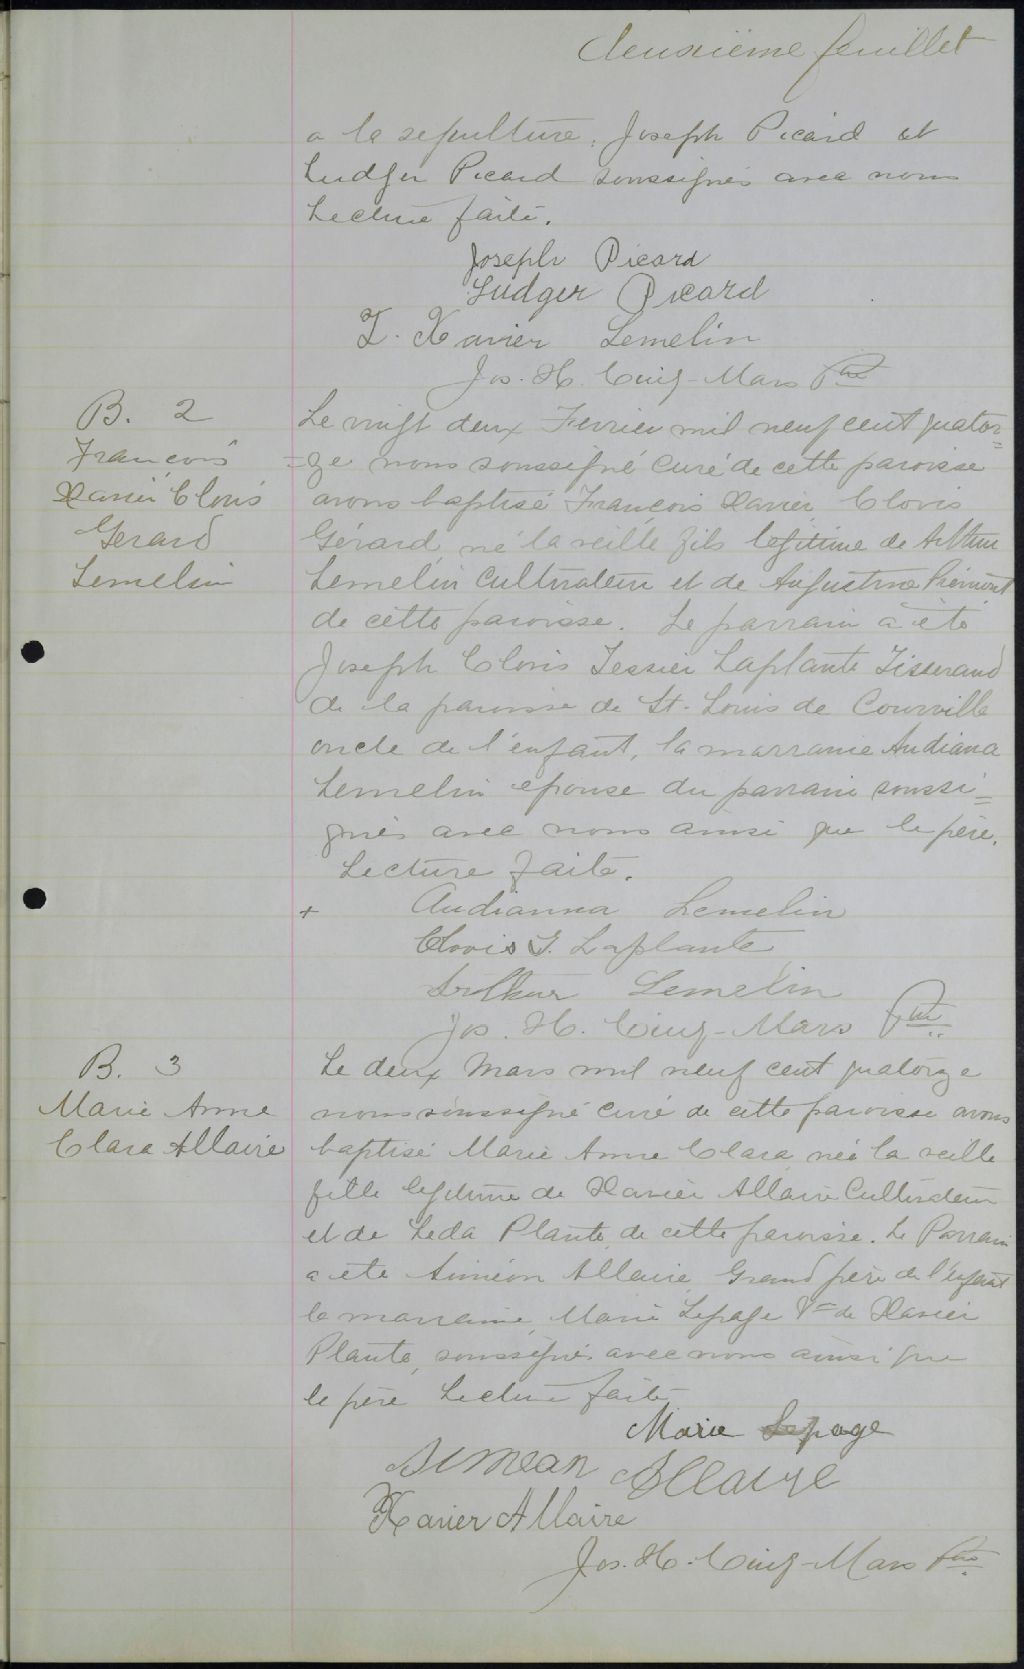 deuxième feuillet
a la sepulture, Joseph Picard et
Ludger Picard soussignés avec nous
Lecture faite.
Joseph Picard
Ludger Picard
F. Xavier Lemelin
Jos. H. Cinq-Mars Ptre
B. 2
François
Xavier Clovis
Gerard
Lemelin
Le vingt deux Fevrier mil neuf cent quator=
=ze nous soussigné Curé de cette paroisse
avons baptisé François Xavier Clovis
Gérard né la veille fils legitime de Arthur
Lemelin Cultivateur et de Augustine
de cette paroisse. Le parrain a été
Joseph Clovis Tessier Laplante Tisserand
de la paroisse de St. Louis de Courville
oncle de l'enfant, la marraine Audiana
Lemelin epouse du parrain soussi=
gnés avec nous ainsi que le père.
Lecture faite.
+ Audianna Lemelin
Clovis T. Laplante
Arthur Lemelin
Jos. H. Cinq-Mars Ptre
B. 3
Marie Anne
Clara Allaire
Le deux Mars mil neuf cent quatorze
nous soussigné Curé de cette paroisse avons
baptisé Marie Anne Clara née la veille
fille legitime de Xavier Allaire Cultivateur
et de Leda Plante de cette paroisse. Le Parrain
a ete Siméon Allaire Grand père de l'enfant
la marraine Marie Lepage Ve de Xavier
Plante, soussignés avec nous ainsi que
le père Lecture faite
Marie Lepage
Simean Allaire
Xavier Allaire
Jos. H. Cinq-Mars Ptre